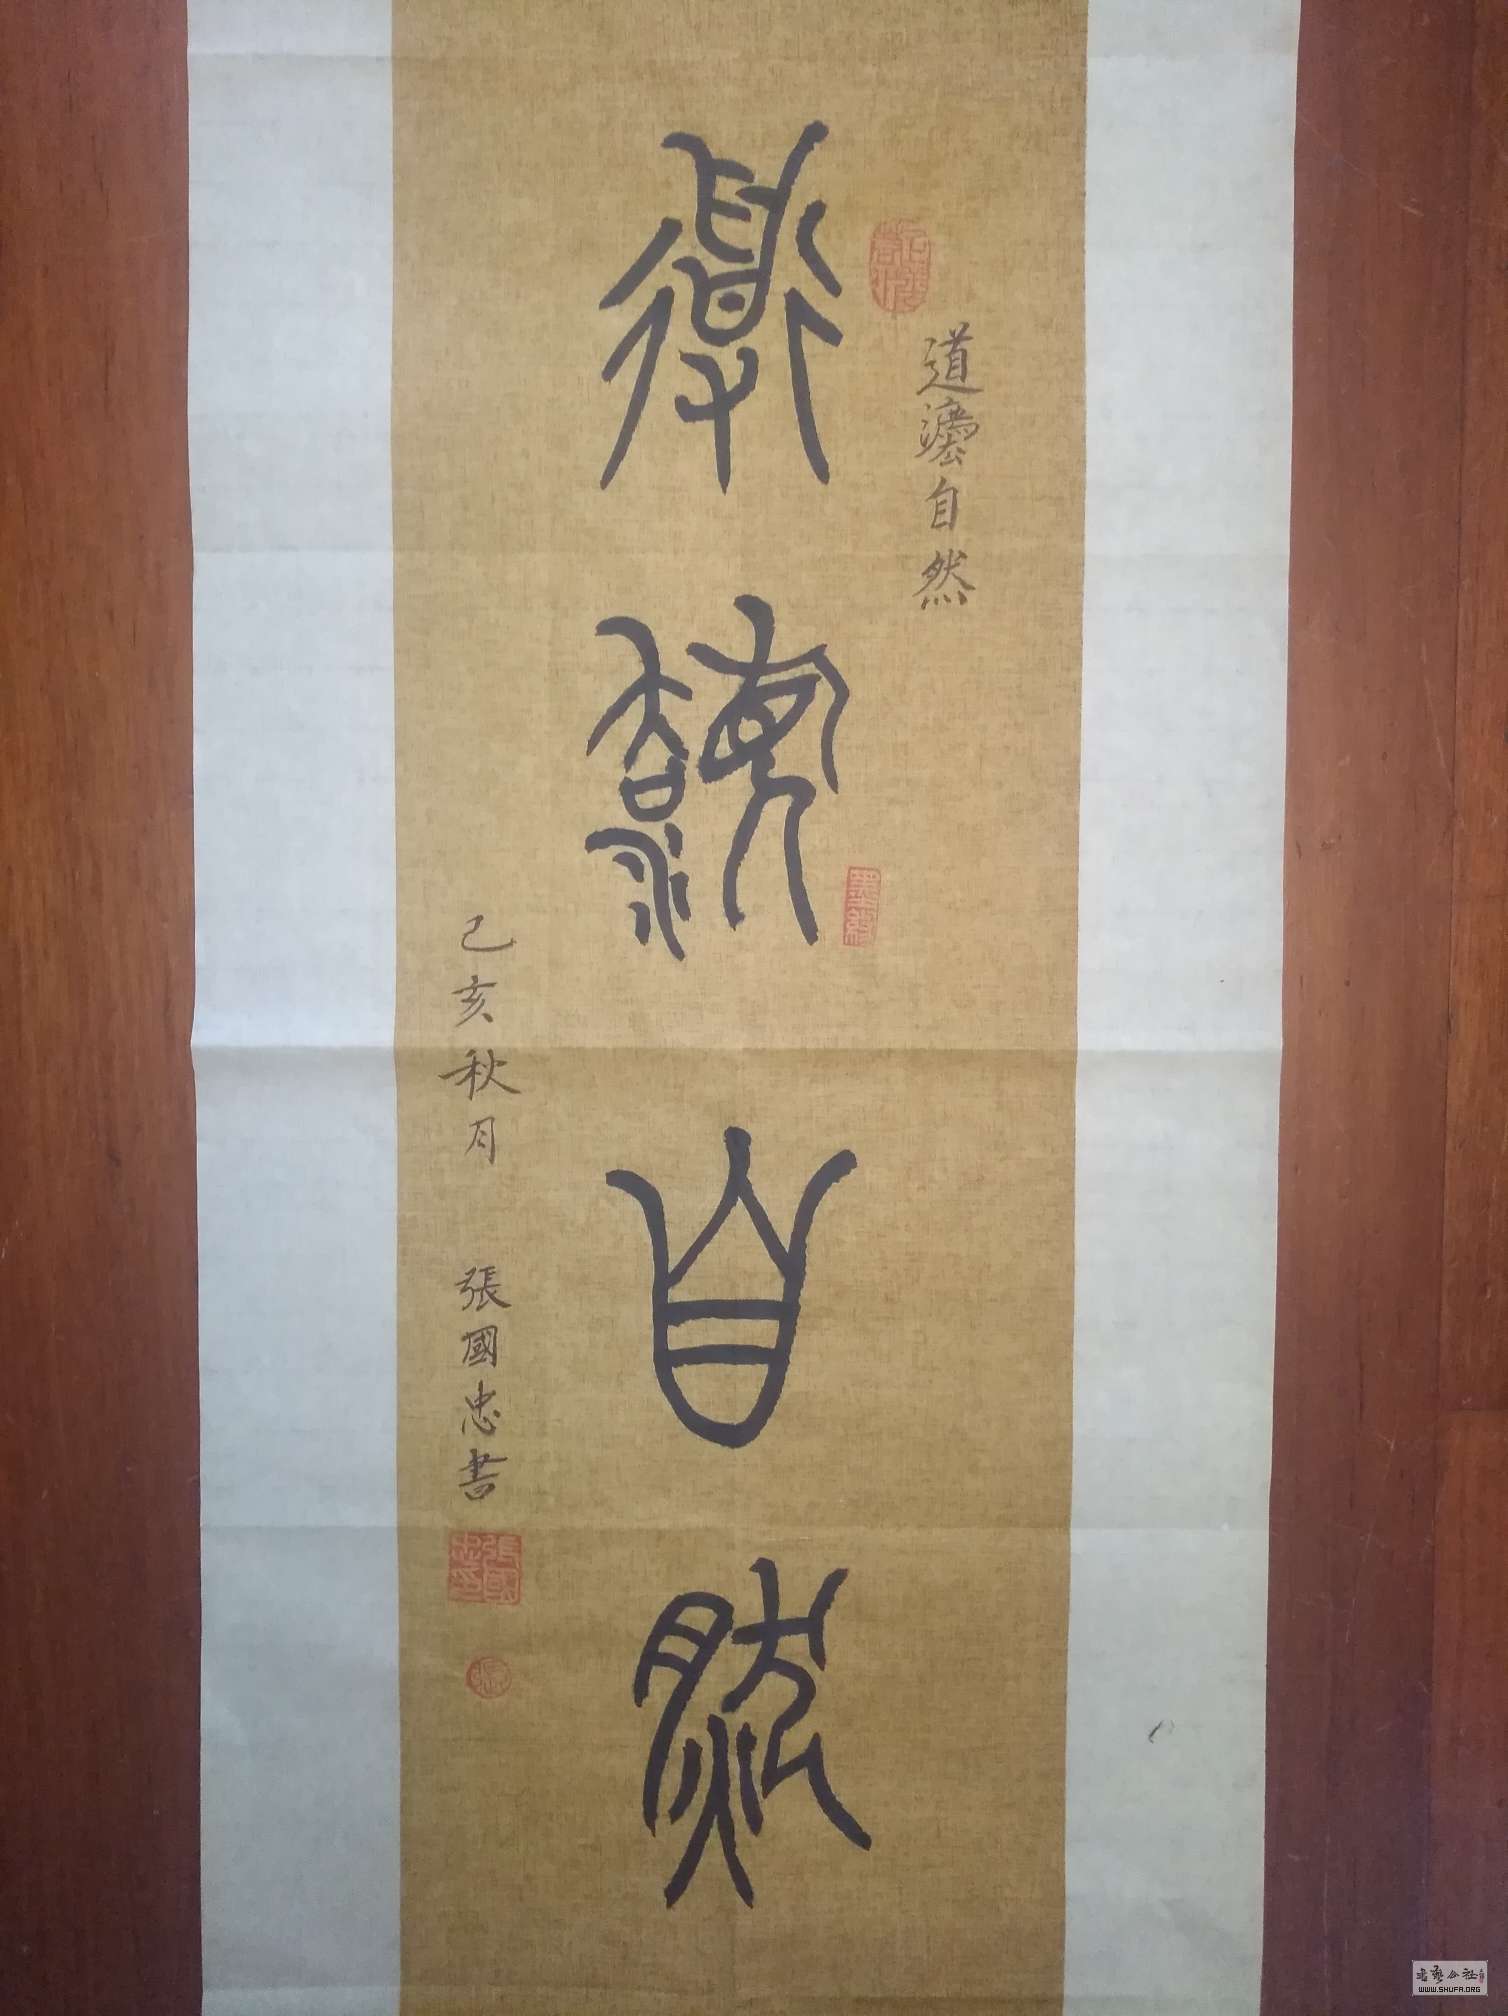 道灋自然
道灋自然
己亥秋月 張國忠書
張國忠印
WWW.SHUFA.ORG